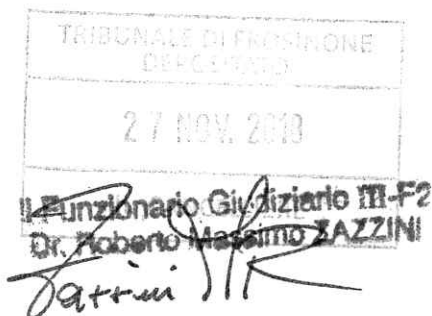 TRIBUNALE DI FROSINONE
DEPOSITATO
27 NOV. 2018
Il Funzionario Giudiziario III-F2
Dr. Roberto Massimo ZAZZINI